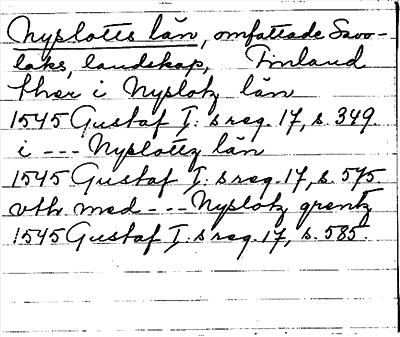 Nyslotts län, omfattade Savo-
laks, landskap, Finland
ther i Nyslotz län
1545 Gustaf I:s reg. 17, s. 349.
i --- Nyslottz län
1545 Gustaf I:s reg. 17, s. 575
vth med --- Nyslotz grentz
1545 Gustaf I:s reg. 17, s. 585.